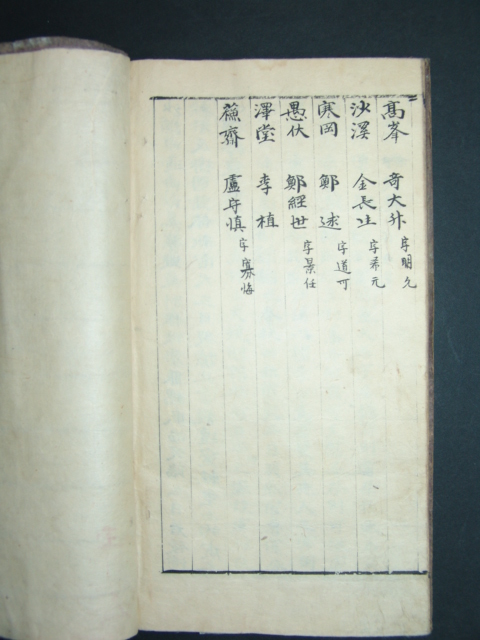 高峯 奇大升 字明彦
沙溪 金長生 字希元
寒岡 鄭逑 字道可
愚伏 鄭經世 字景任
澤堂 李植
蘓齋 盧守慎 字寡悔